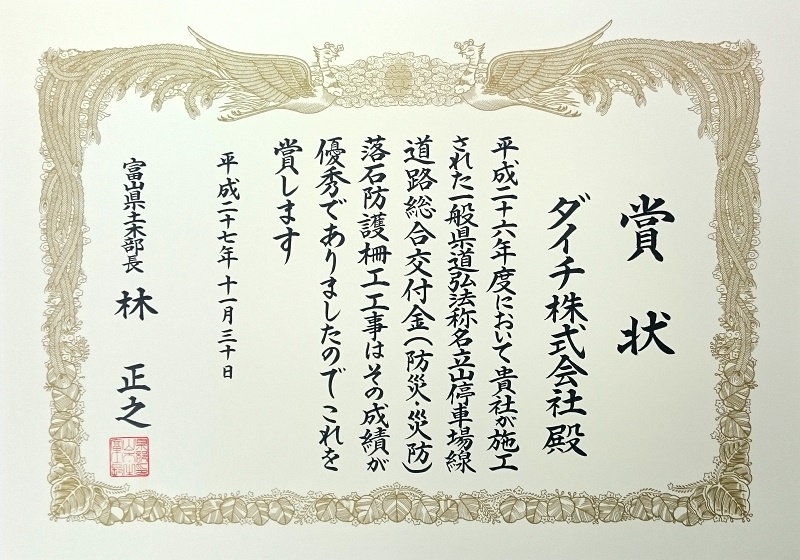 賞状
ダイチ株式会社殿
平成二十六年度において貴社が施工
された一般県道弘法称名立山停車場線
道路総合交付金(防災・災防)
落石防護柵工工事はその成績が
優秀でありましたのでこれを
賞します
平成二十七年十一月三十日
富山県土木部長 林 正之